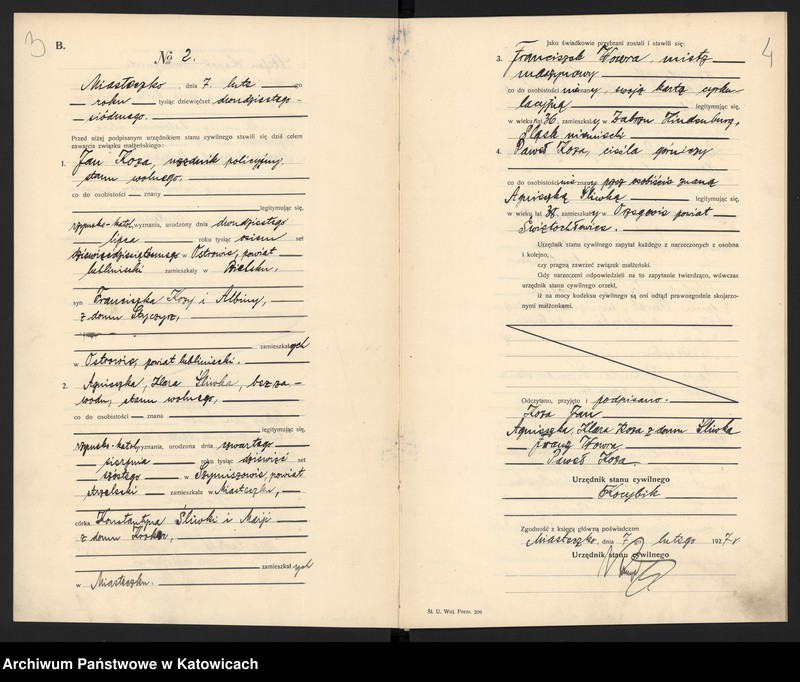 3
B.
No 2.
Miasteczko, dnia 7. lutego
roku tysiąc dziewięćset dwudziestego-
siódmego.
Przed niżej podpisanym urzędnikiem stanu cywilnego stawili się dziś celem
zawarcia związku małżeńskiego:
1. Jan Koza, urzędnik policyjny,
stanu wolnego,
co do osobistości znany
legitymując się,
rzymsko-katol. wyznania, urodzony dnia dwudziestego
lipca roku tysiąc osiem set
dziewięćdziesiątego w Ostrowie, powiat
lubliniecki zamieszkały w Bielsku.
syn Franciszka Kozy i Albiny,
z domu
zamieszkałych
w Ostrowie, powiat lubliniecki.
2. Agnieszka, Klara Śliwka, bez za-
wodu, stanu wolnego,
co do osobistości znana
legitymując się,
rzymsko-katol. wyznania, urodzona dnia czwartego
sierpnia roku tysiąc dziewięć set
szóstego w Szymiszowie, powiat
strzelecki zamieszkała w Miasteczku,
córka Konstantyna Śliwki i Marji
z domu
zamieszkałych
w Miasteczku.
4
Jako świadkowie przybrani zostali i stawili się:
3. Franciszek Wowra, mistrz
maszynowy
co do osobistości nieznany, swoją kartą cyrku-
lacyjną legitymując się,
w wieku lat 36, zamieszkały w Zabrzu Hindenburg,
Śląsk niemiecki
4. Paweł Koza, cieśla górniczy
co do osobistości nieznany przez osobiście znaną
Agnieszkę Śliwkę legitymując się,
w wieku lat 38, zamieszkały w Orzegowie powiat
Świętochłowice.
Urzędnik stanu cywilnego zapytał każdego z narzeczonych z osobna
i kolejno,
czy pragną zawrzeć związek małżeński.
Gdy narzeczeni odpowiedzieli na to zapytanie twierdząco, wówczas
urzędnik stanu cywilnego orzekł,
iż na mocy kodeksu cywilnego są oni odtąd prawozgodnie skojarzo-
nymi małżonkami.
Odczytano, przyjęto i podpisano.
Koza Jan
Agnieszka, Klara Koza z domu Śliwka
Franz Wowra
Paweł Koza.
Urzędnik stanu cywilnego
Kocybik
Zgodność z księgą główną poświadczam
Miasteczko, dnia 7 go lutego 1927 r
Urzędnik stanu cywilnego
Śl. U. Woj. Form. 209
Archiwum Państwowe w Katowicach